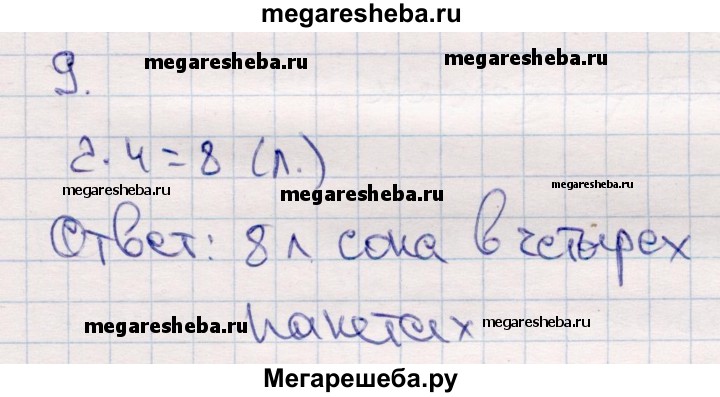 megaresheba.ru
9.
megaresheba.ru megaresheba.ru
2·4=8 (л.)
megaresheba.ru megaresheba.ru megaresheba.ru
Ответ: 8 л сока в четырех
megaresheba.ru пакетах megaresheba.ru
Мегарешеба.ру